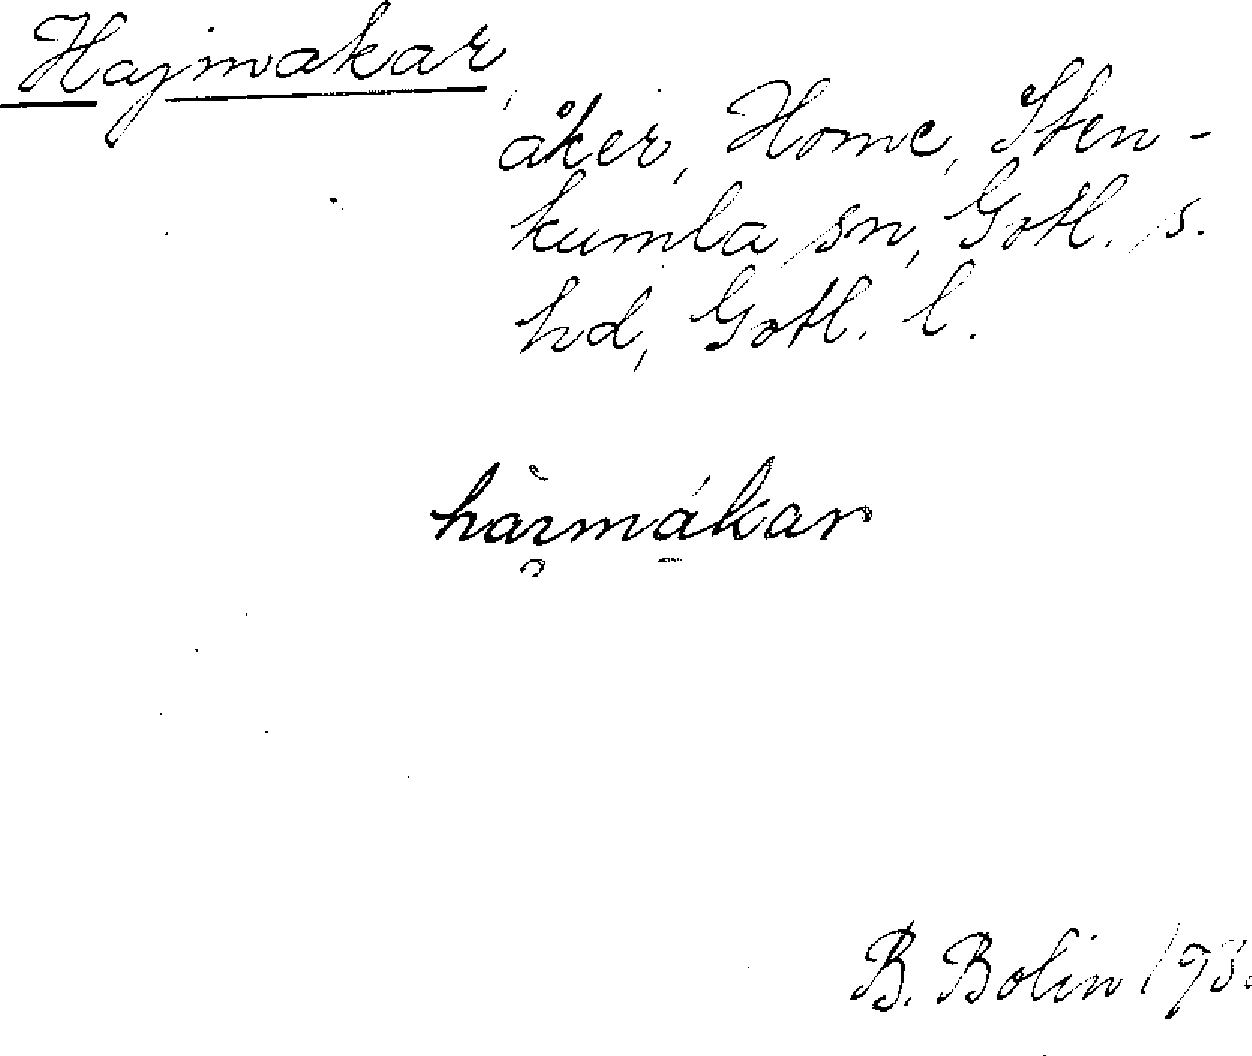 Hajmakar
åker, Home, Sten-
kumla sn, Gotl. s.
hd, Gotl. l.
B. Bolin 193